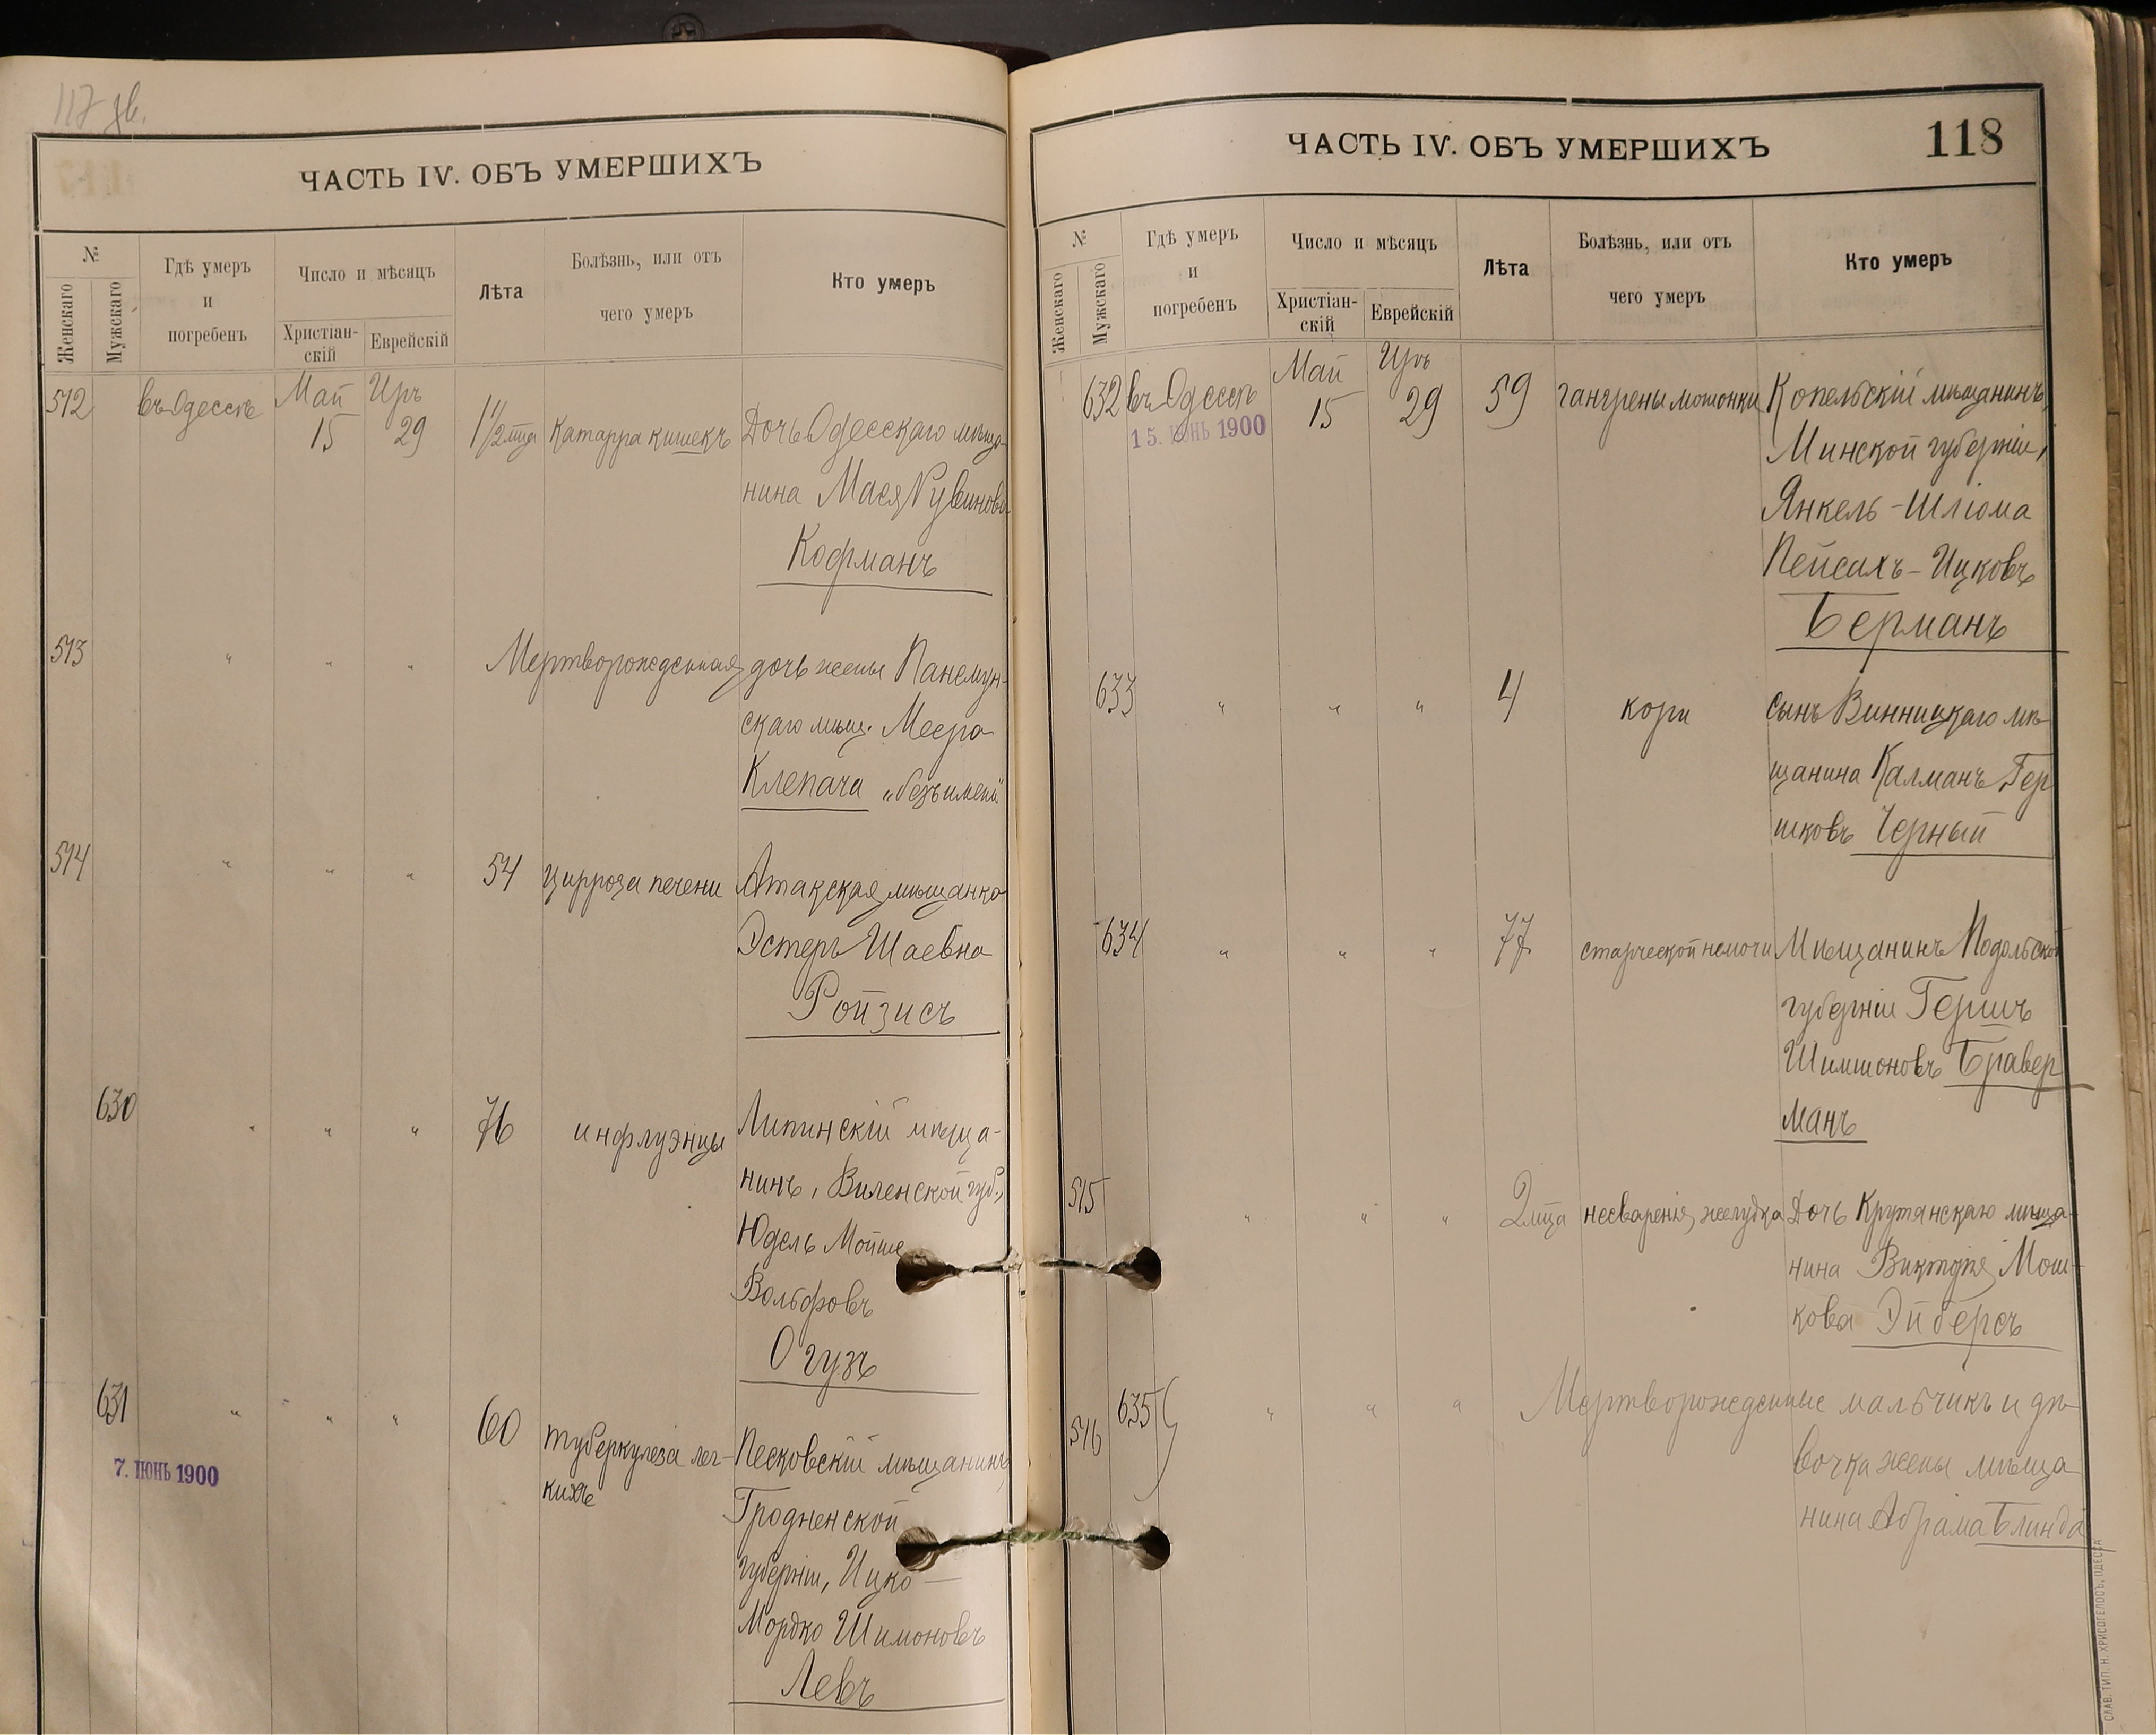 117 
ЧАСТЬ IV. ОБЪ УМЕРШИХЪ
№
Женскаго
Мужскаго
Гдѣ умеръ
и
погребенъ
Число и мѣсяцъ
Христіан-
скій
Еврейскій
Лѣта
Болѣзнь, или отъ
чего умеръ
Кто умеръ
512 въ Одессѣ Май 15 Иръ 29 1 1/2 мца Катарра кишекъ Дочь Одесскаго мѣща-
нина Мася Рувинова
Кофманъ
513 " " " Мертворожденная дочь жены Панемун-
скаго мѣщ. Меера
Клепача „безъимени"
514 " " " 54 цирроза печени Атакская мѣщанка
Эстеръ Шаевна
Ройзисъ
630 " " " 76 инфлуэнцы Липинскій мѣща-
нинъ, Виленской губ.,
Юдель Мойше
Вольфовъ
Огузъ
631 " " " 60 туберкулеза лег-
кихъ
Песковскій мѣщанинъ
7. ІЮНЬ 1900
Гродненской
губерніи, Ицко-
Мордко Шимоновъ
Левъ
ЧАСТЬ IV. ОБЪ УМЕРШИХЪ
118
№
Женскаго
Мужскаго
Гдѣ умеръ
и
погребенъ
Число и мѣсяцъ
Христіан-
скій
Еврейскій
Лѣта
Болѣзнь, или отъ
чего умеръ
Кто умеръ
632 въ Одессѣ Май 15 Иръ 29 59 гангрены мошонки Копельскій мѣщанинъ,
15. ІЮНЬ 1900
Минской губерніи,
Янкель-Шліома
Пейсахъ-Ицковъ
Берманъ
633 " " " 4 кори сынъ Винницкаго мѣ-
щанина Калманъ Гер
шковъ Черный
634 " " " 77 старческой немочи Мѣщанинъ Подольской
губерніи Гершъ
Шимшоновъ Бравер
манъ
515 " " " 2 мца несваренія желудка Дочь Крутянскаго мѣща-
нина Викторія Мош-
кова Эйберсъ
516 635 " " " Мертворожденные мальчикъ и дѣ-
вочка жены мѣща-
нина Абрама Блинда
СЛАВ. ТИП. Н. ХРИСОГЕЛОСЪ, ОДЕССА